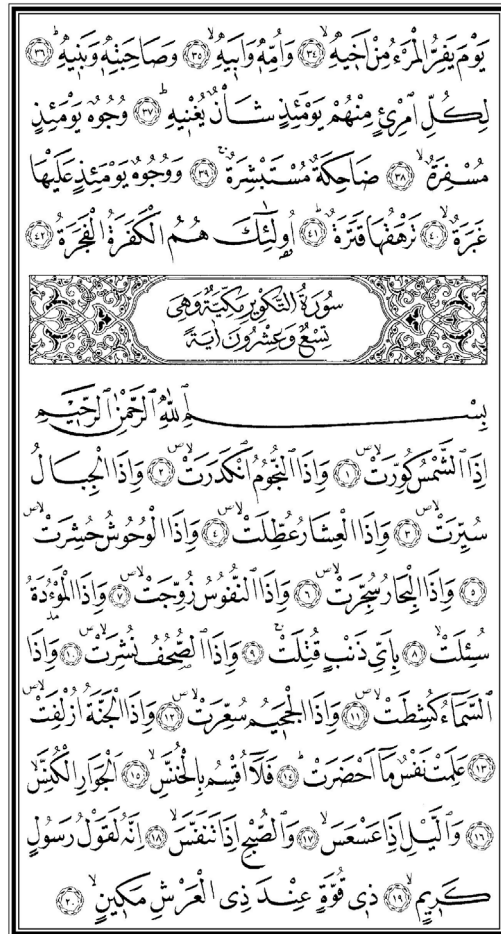 يَوْمَ يَفِرُّ الْمَرْءُ مِنْ اَخ۪يهِۙ ﴿٣٤﴾ وَاُمِّه۪ وَاَب۪يهِۙ ﴿٣٥﴾ وَصَاحِبَتِه۪ وَبَن۪يهِۜ ﴿٣٦﴾
لِكُلِّ امْرِئٍ مِنْهُمْ يَوْمَئِذٍ شَأْنٌ يُغْن۪يهِۜ ﴿٣٧﴾ وُجُوهٌ يَوْمَئِذٍ
مُسْفِرَةٌۙ ﴿٣٨﴾ ضَاحِكَةٌ مُسْتَبْشِرَةٌۚ ﴿٣٩﴾ وَوُجُوهٌ يَوْمَئِذٍ عَلَيْهَا
غَبَرَةٌۙ ﴿٤٠﴾ تَرْهَقُهَا قَتَرَةٌۜ ﴿٤١﴾ اُو۬لٰٓئِكَ هُمُ الْكَفَرَةُ الْفَجَرَةُ ﴿٤٢﴾
سُورَةُ التَّكْوِيرِ مَكِّيَّةٌ وَهِيَ
تِسْعٌ وَعِشْرُونَ اٰيَةً
بِسْمِ اللّٰهِ الرَّحْمٰنِ الرَّح۪يمِ
اِذَا الشَّمْسُ كُوِّرَتْۙۖ ﴿١﴾ وَاِذَا النُّجُومُ انْكَدَرَتْۙۖ ﴿٢﴾ وَاِذَا الْجِبَالُ
سُيِّرَتْۙۖ ﴿٣﴾ وَاِذَا الْعِشَارُ عُطِّلَتْۙۖ ﴿٤﴾ وَاِذَا الْوُحُوشُ حُشِرَتْۙۖ
﴿٥﴾ وَاِذَا الْبِحَارُ سُجِّرَتْۙۖ ﴿٦﴾ وَاِذَا النُّفُوسُ زُوِّجَتْۙۖ ﴿٧﴾ وَاِذَا الْمَوْءُ۫دَةُ
سُئِلَتْۙ ﴿٨﴾ بِاَيِّ ذَنْبٍ قُتِلَتْۚ ﴿٩﴾ وَاِذَا الصُّحُفُ نُشِرَتْۙۖ ﴿١٠﴾ وَاِذَا
السَّمَٓاءُ كُشِطَتْۙۖ ﴿١١﴾ وَاِذَا الْجَح۪يمُ سُعِّرَتْۙۖ ﴿١٢﴾ وَاِذَا الْجَنَّةُ اُزْلِفَتْۙۖ
﴿١٣﴾ عَلِمَتْ نَفْسٌ مَٓا اَحْضَرَتْۜ ﴿١٤﴾ فَلَٓا اُقْسِمُ بِالْخُنَّسِۙ ﴿١٥﴾ اَلْجَوَارِ الْكُنَّسِۙ
﴿١٦﴾ وَالَّيْلِ اِذَا عَسْعَسَۙ ﴿١٧﴾ وَالصُّبْحِ اِذَا تَنَفَّسَۙ ﴿١٨﴾ اِنَّهُ لَقَوْلُ رَسُولٍ
كَر۪يمٍۙ ﴿١٩﴾ ذ۪ي قُوَّةٍ عِنْدَ ذِي الْعَرْشِ مَك۪ينٍۙ ﴿٢٠﴾